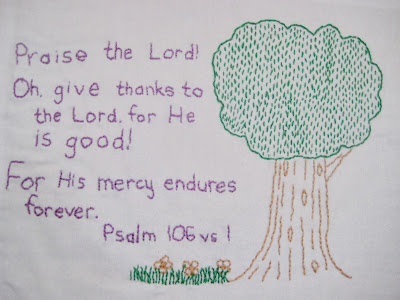 Praise the Lord!
Oh, give thanks to
the Lord, for He
is good!
For His mercy endures
forever.
Psalm 106 vs 1